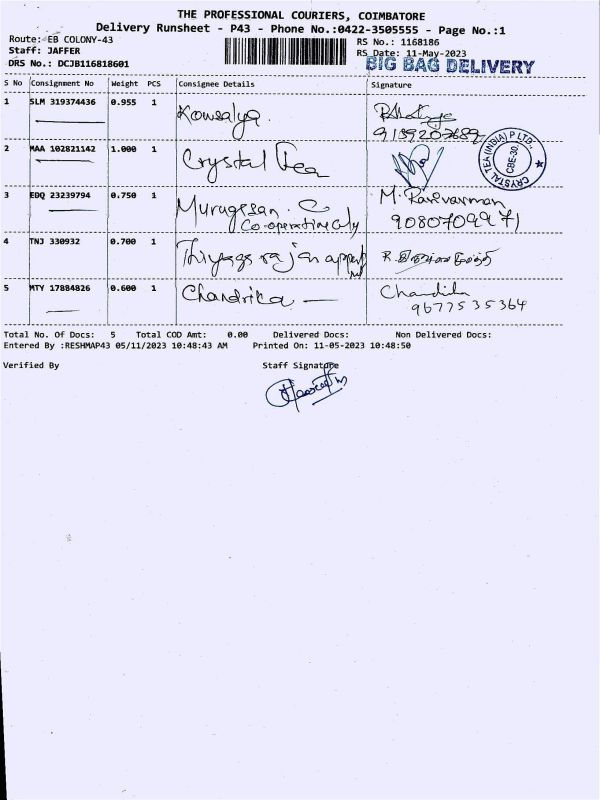 THE PROFESSIONAL COURIERS, COIMBATORE
Delivery Runsheet - P43 - Phone No.:0422-3505555 - Page No.:1
Route: EB COLONY-43
RS No.: 1168186
Staff: JAFFER
RS Date: 11-May-2023
DRS No.: DCJB116818601
BIG BAG DELIVERY
S No Consignment No Weight PCS Consignee Details Signature
1 SLM 319374436 0.955 1 Kowsalya.
2 MAA 102821142 1.000 1 Crystal Tea
CRYSTAL TEA (INDIA) P LTD. CBE-30
3 EDQ 23239794 0.750 1 Murugesan. C M.
Co-operative 9080709971
4 TNJ 330932 0.700 1 Thiyagarajan R.
5 MTY 17884826 0.600 1 Chandrika — Chandrika
9677535364
Total No. Of Docs: 5 Total COD Amt: 0.00 Delivered Docs: Non Delivered Docs:
Entered By :RESHMAP43 05/11/2023 10:48:43 AM Printed On: 11-05-2023 10:48:50
Verified By Staff Signature